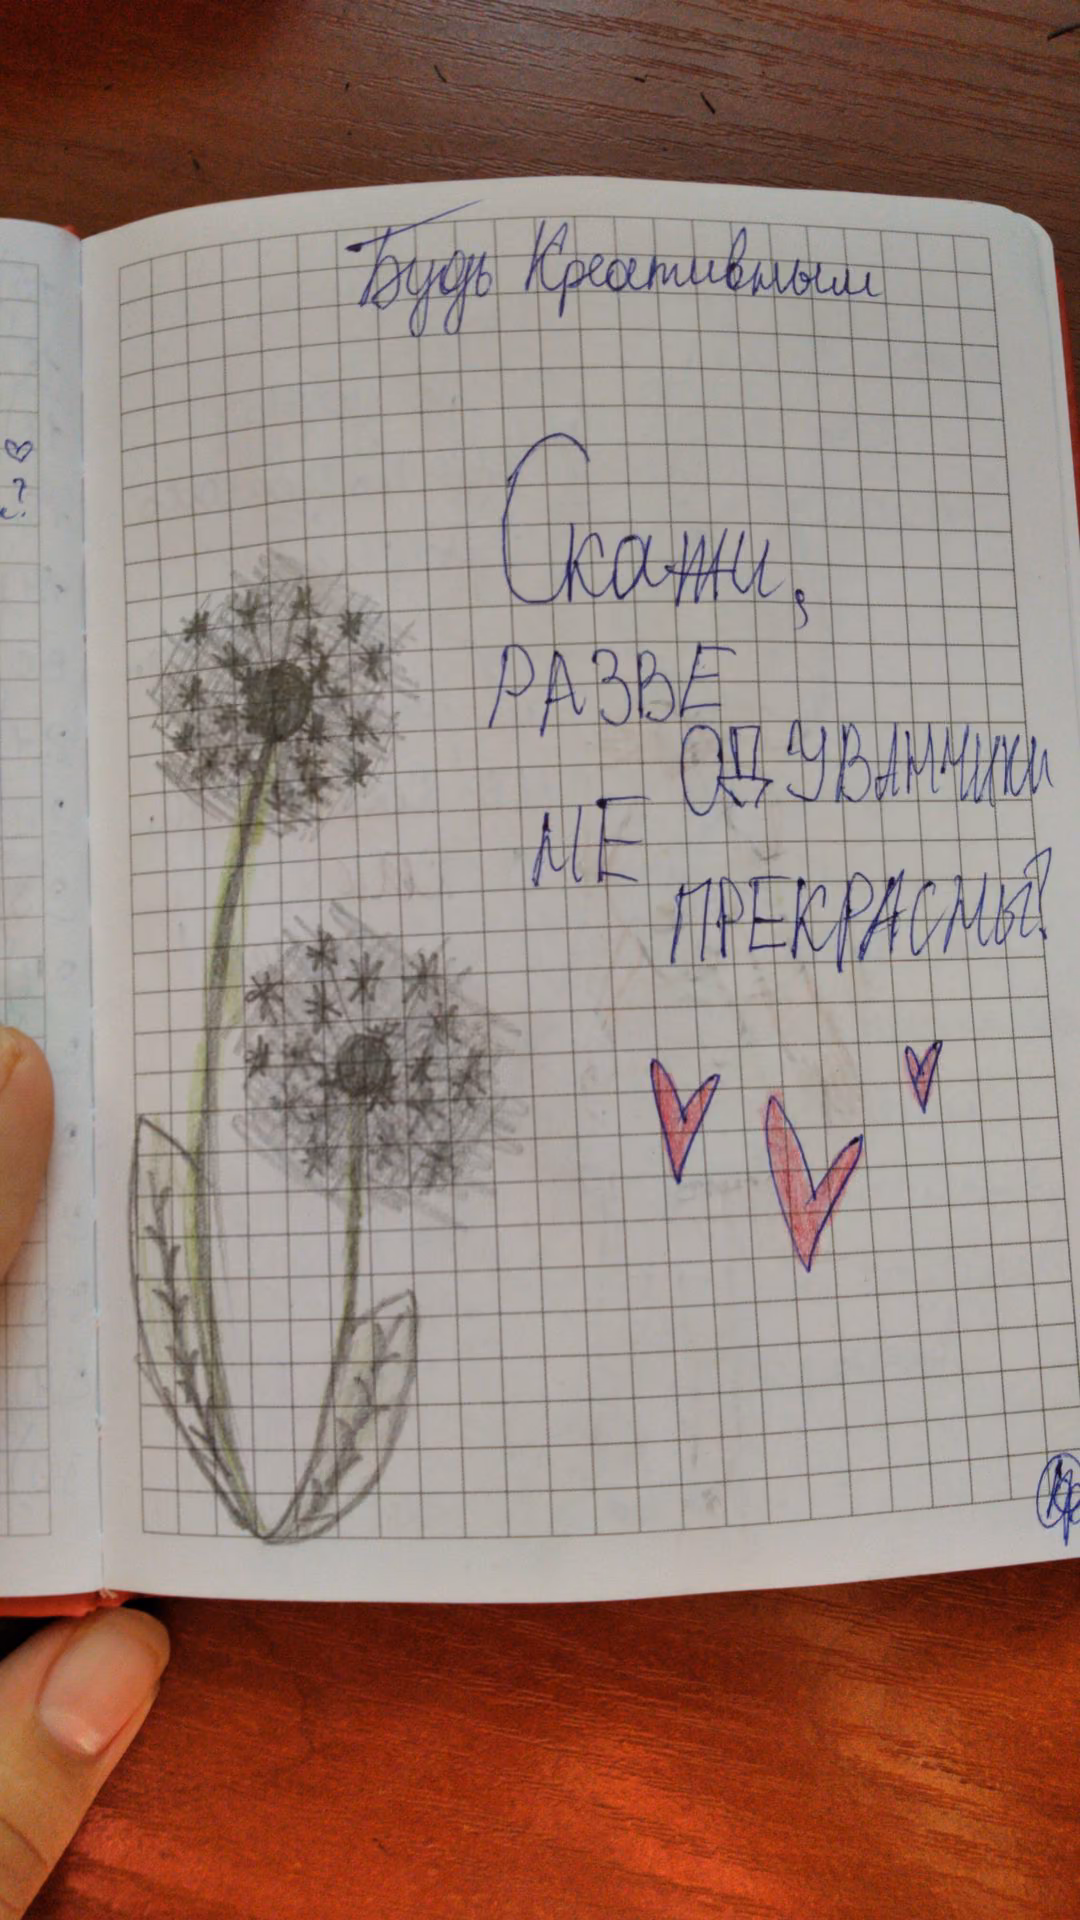 Будь Креативным
Скажи,
РАЗВЕ
ОДУВАНЧИКИ
НЕ
ПРЕКРАСНЫ?